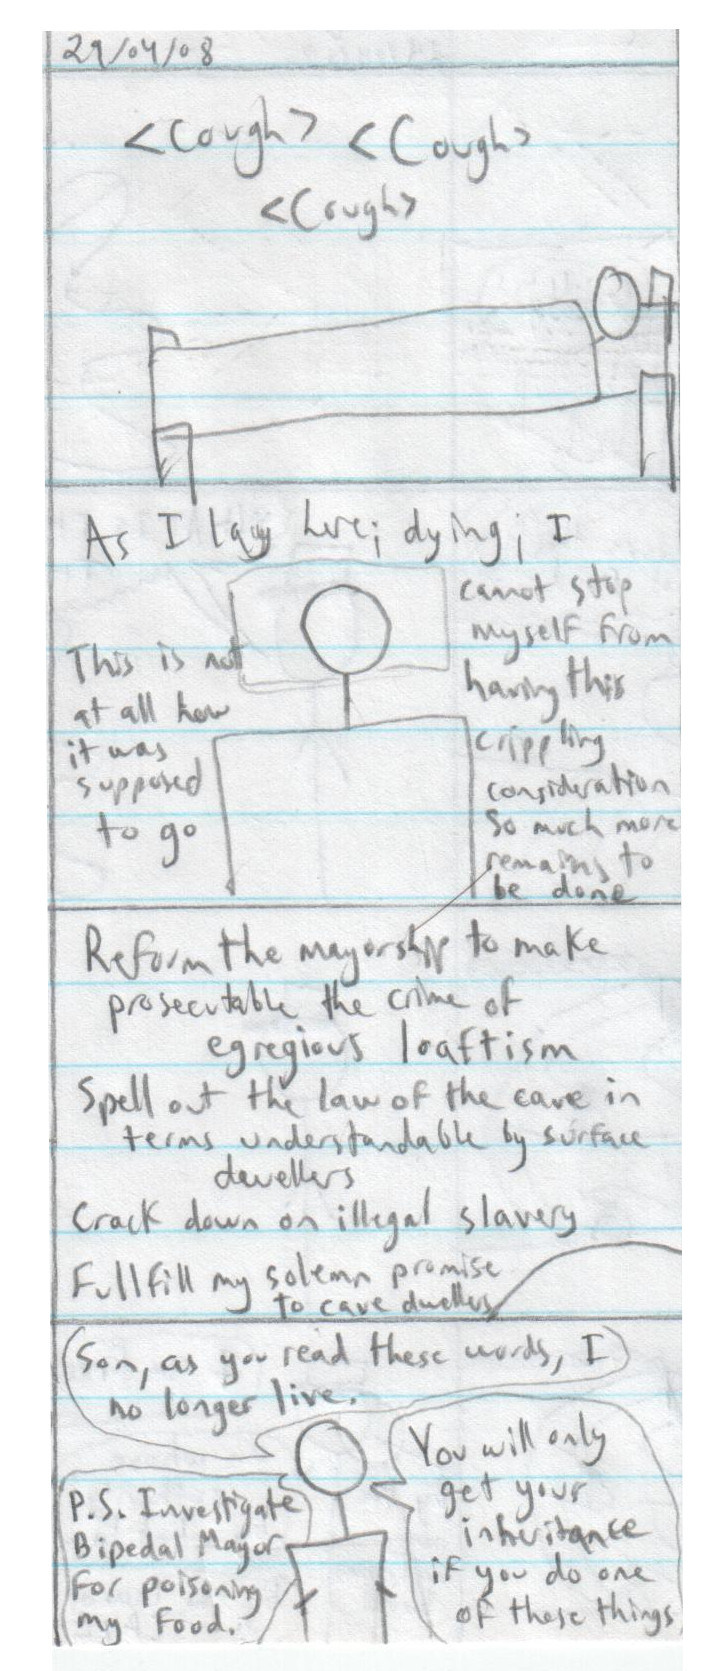 29/04/08
<Cough> <Cough>
<Cough>
As I lay here; dying; I
cannot stop
myself from
having this
crippling
consideration
So much more
remains to
be done
This is not
at all how
it was
supposed
to go
Reform the mayorship to make
prosecutable the crime of
egregious loaftism
Spell out the law of the cave in
terms understandable by surface
dwellers
Crack down on illegal slavery
Fullfill my solemn promise
to cave dwellers
Son, as you read these words, I
no longer live.
You will only
get your
inheritance
if you do one
of these things
P.S. Investigate
Bipedal Mayor
For poisoning
my food.